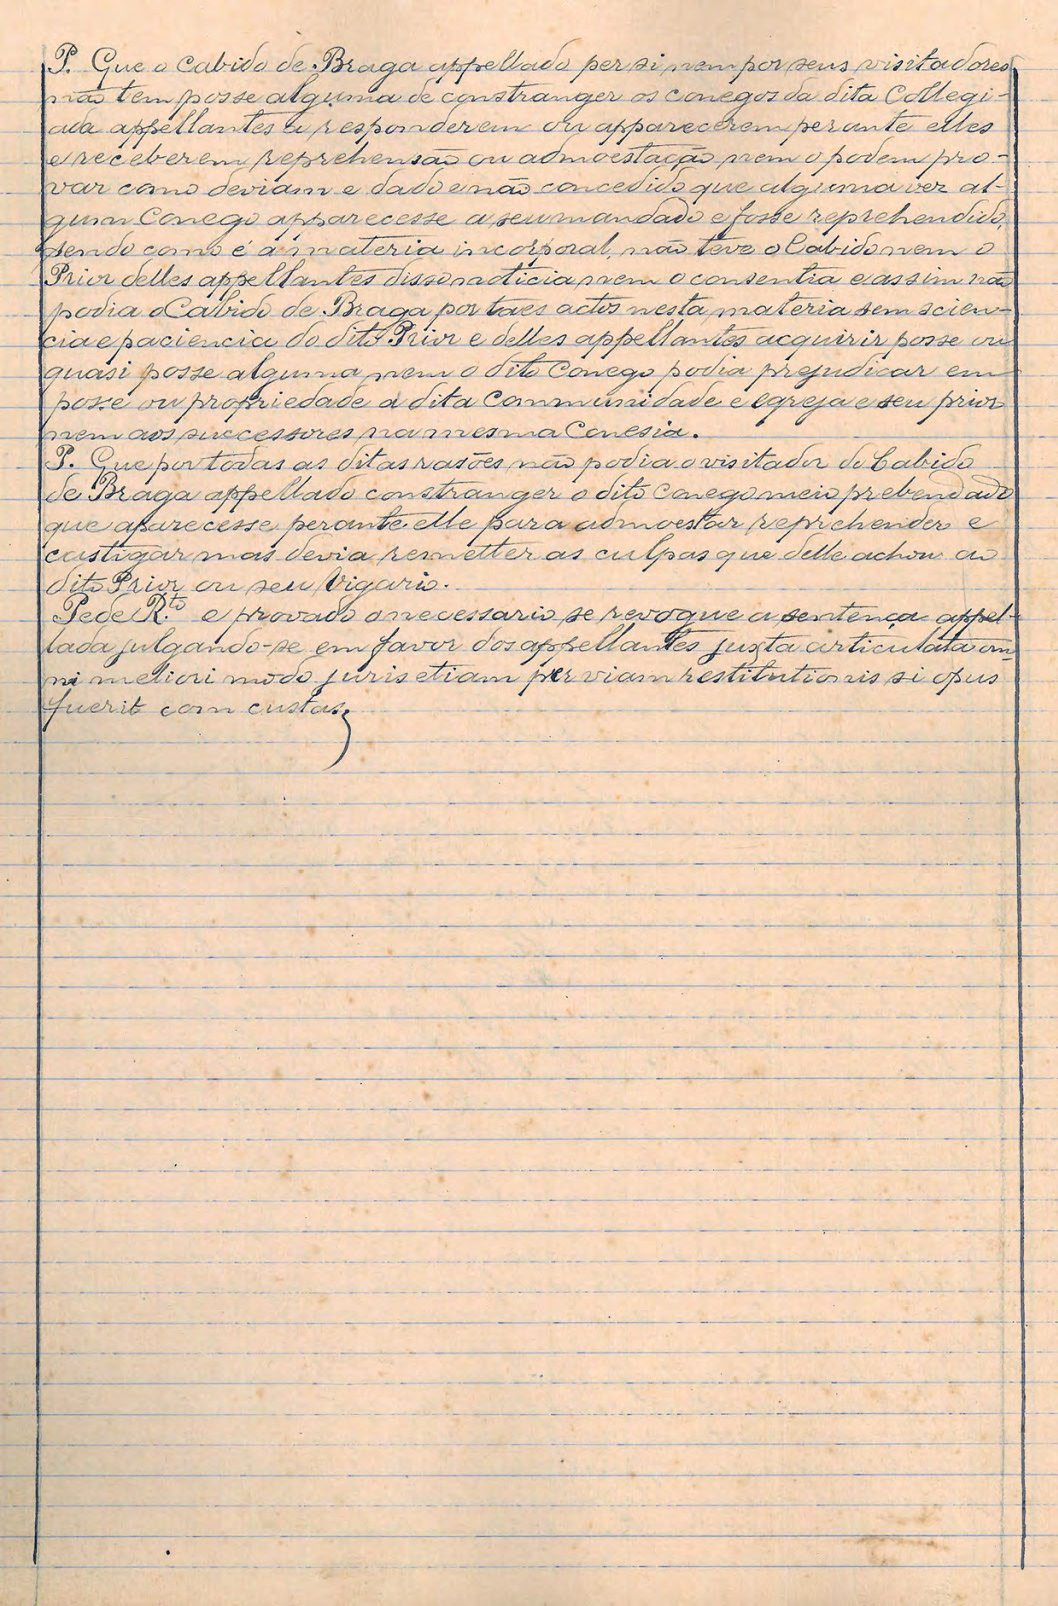 P. Que o Cabido de Braga appellado per si nem por seus visitadores
não tem posse alguma de constranger os conegos da dita Collegi-
ada appellantes a responderem ou apparecerem perante elles
e receberem reprehensão ou admoestação nem o podem pro-
var como deviam e dado e não concedido que alguma vez al-
gum Conego apparecesse a seu mandado e fosse reprehendido,
sendo como é a materia incorporal, não teve o Cabido nem o
Prior delles appellantes disso noticia nem o consentia e assim não
podia o Cabido de Braga por taes actos nesta materia sem scien-
cia e paciencia do dito Prior e delles appellantes acquirir posse ou
quasi posse alguma nem o dito Conego podia prejudicar em
posse ou propriedade á dita Communidade e egreja e seu prior
nem aos successores na mesma Conesia.
P. Que por todas as ditas rasões não podia o visitador do Cabido
de Braga appellado constranger o dito conego meio prebendado
que aparecesse perante elle para admoestar reprehender e
castigar mas devia remetter as culpas que delle achou ao
dito Prior ou seu Vigario.
Pede R.to e provado o necessario se revogue a sentença appel-
lada julgando-se em favor dos appellantes juxta articulata om-
ni meliori modo juris etiam per viam restitutionis si opus
fuerit com custas